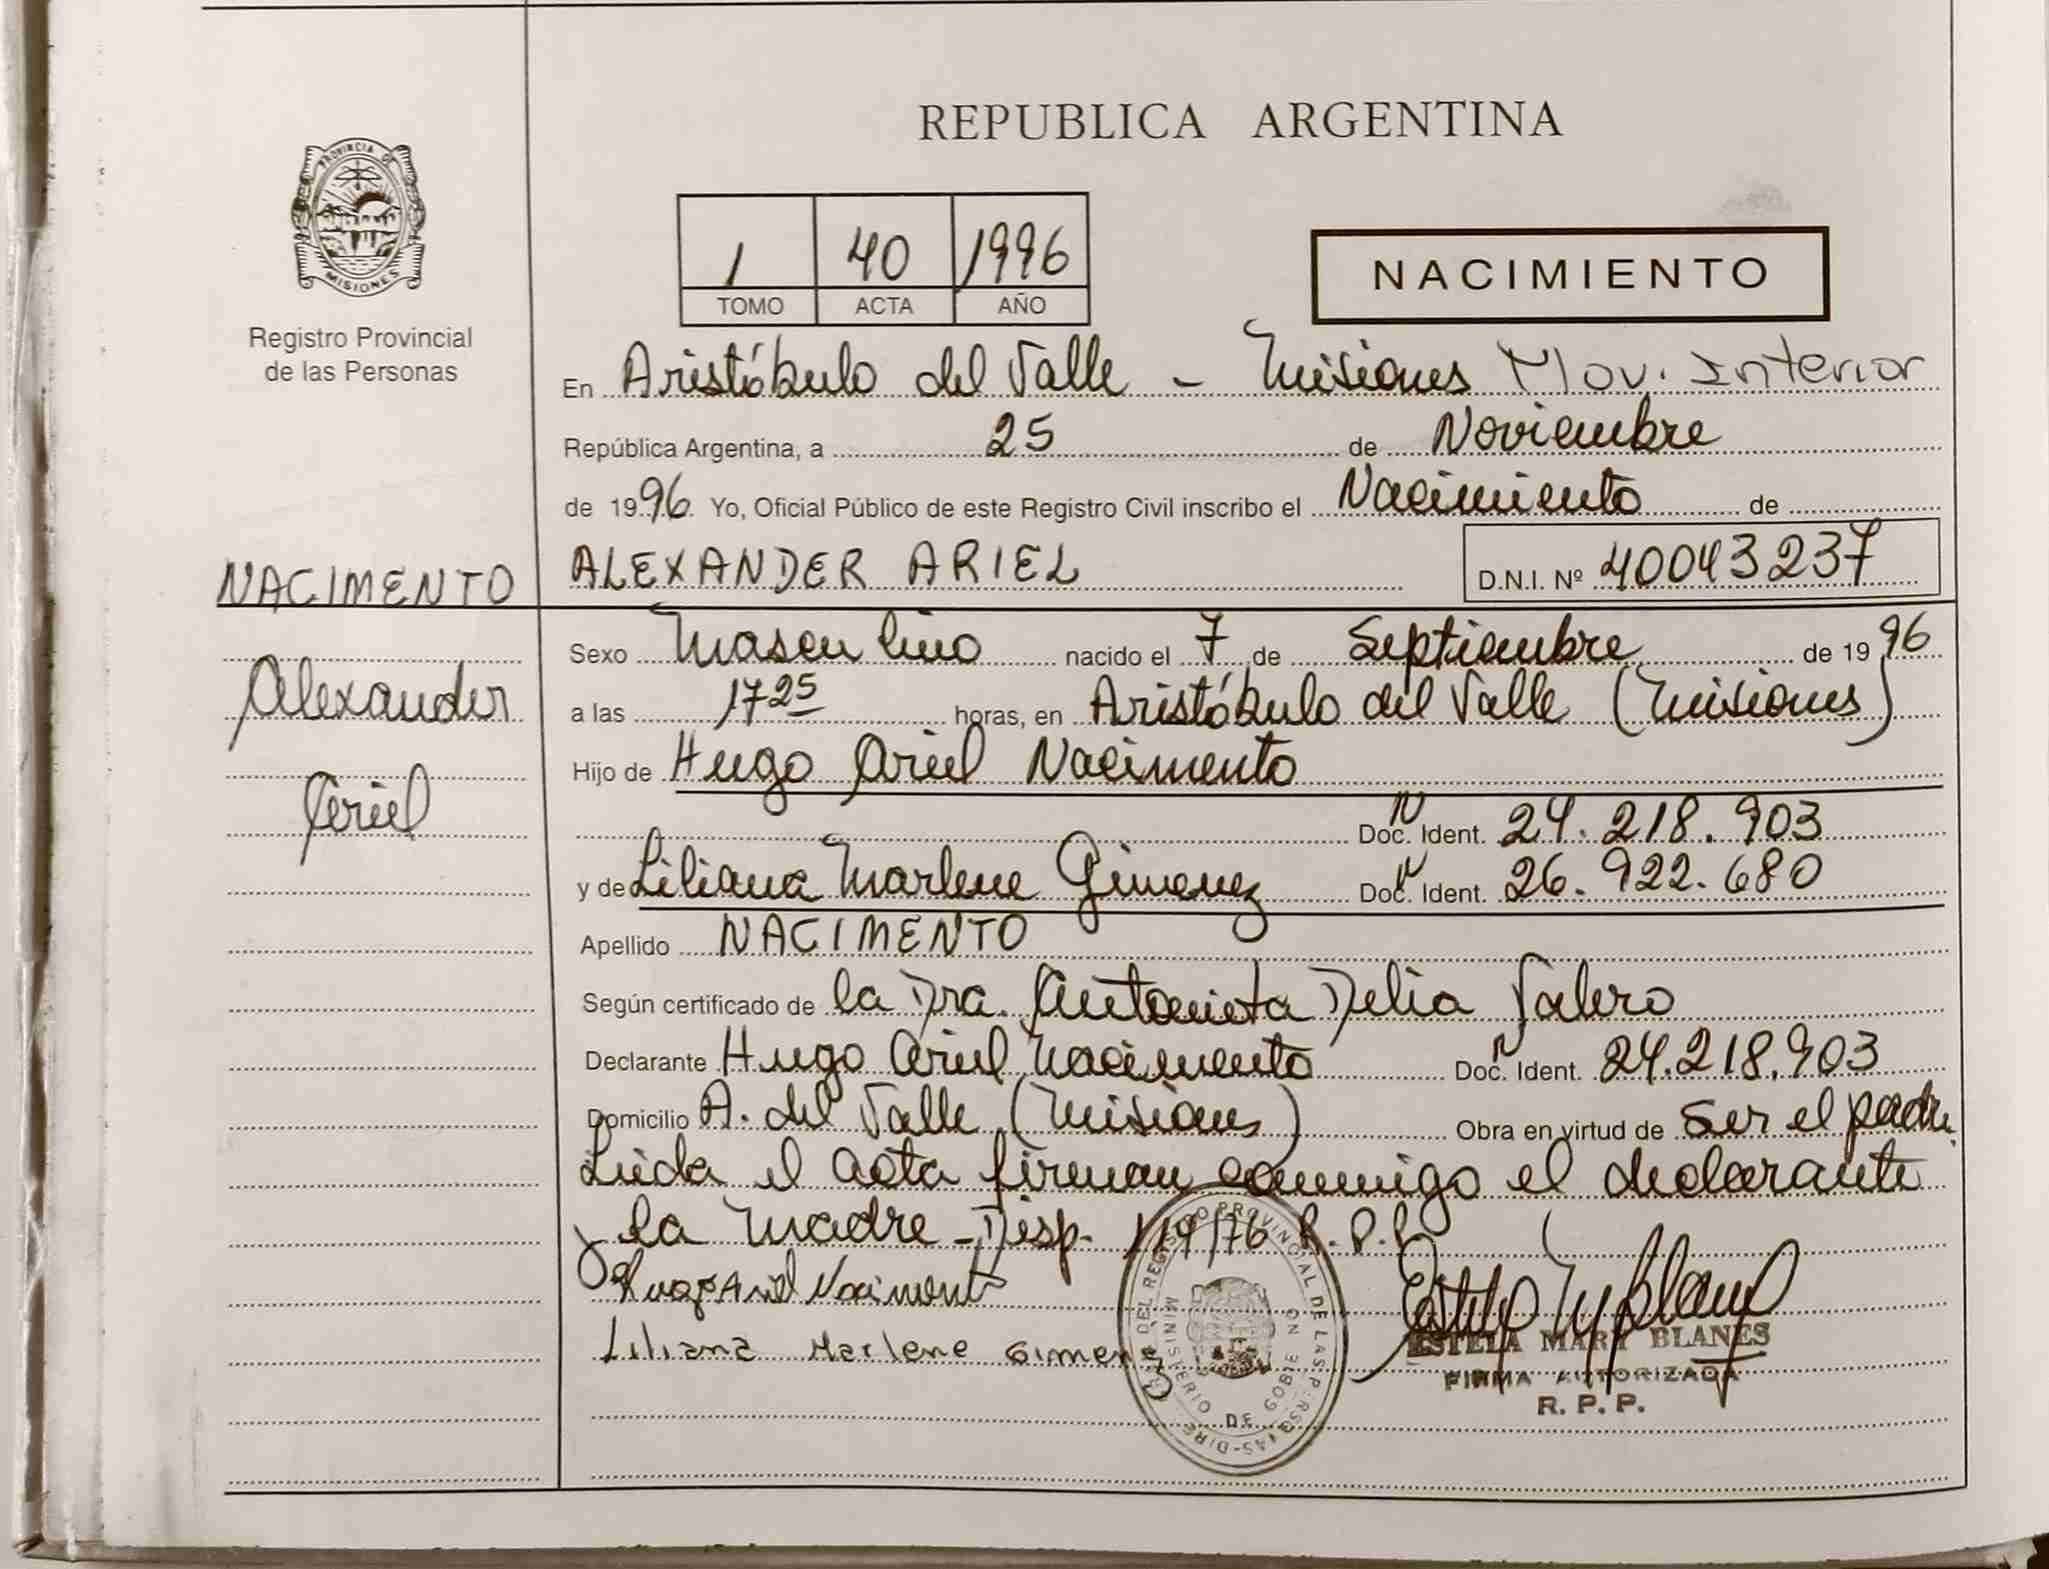 REPUBLICA ARGENTINA
PROVINCIA DE
MISIONES
Registro Provincial
de las Personas
1 40 1996
TOMO ACTA AÑO
NACIMIENTO
En Aristóbulo del Valle - Misiones Mov. Interior
República Argentina, a 25 de Noviembre
de 1996 Yo, Oficial Público de este Registro Civil inscribo el Nacimiento de
NACIMENTO
ALEXANDER ARIEL D.N.I. Nº 40043237
Alexander
Ariel
Sexo Masculino nacido el 7 de Septiembre de 1996
a las 17 25 horas, en Aristóbulo del Valle (Misiones)
Hijo de Hugo Ariel Nacimento
N Doc. Ident. 24.218.903
y de Liliana Marlene Gimenez N Doc. Ident. 26.922.680
Apellido NACIMENTO
Según certificado de la Dra. Antonieta Delia Valero
Declarante Hugo Ariel Nacimento N Doc. Ident. 24.218.903
Domicilio A. del Valle (Misiones) Obra en virtud de ser el padre.
Leida el acta firman conmigo el declarante
y la madre - Disp. 119/76 R.P.P.
Hugo Ariel Nacimento
Liliana Marlene Gimenez
DEL REGISTRO PROVINCIAL DE LAS
MINISTERIO DE GOBIE
ESTELA MARY BLANES
FIRMA AUTORIZADA
R. P. P.